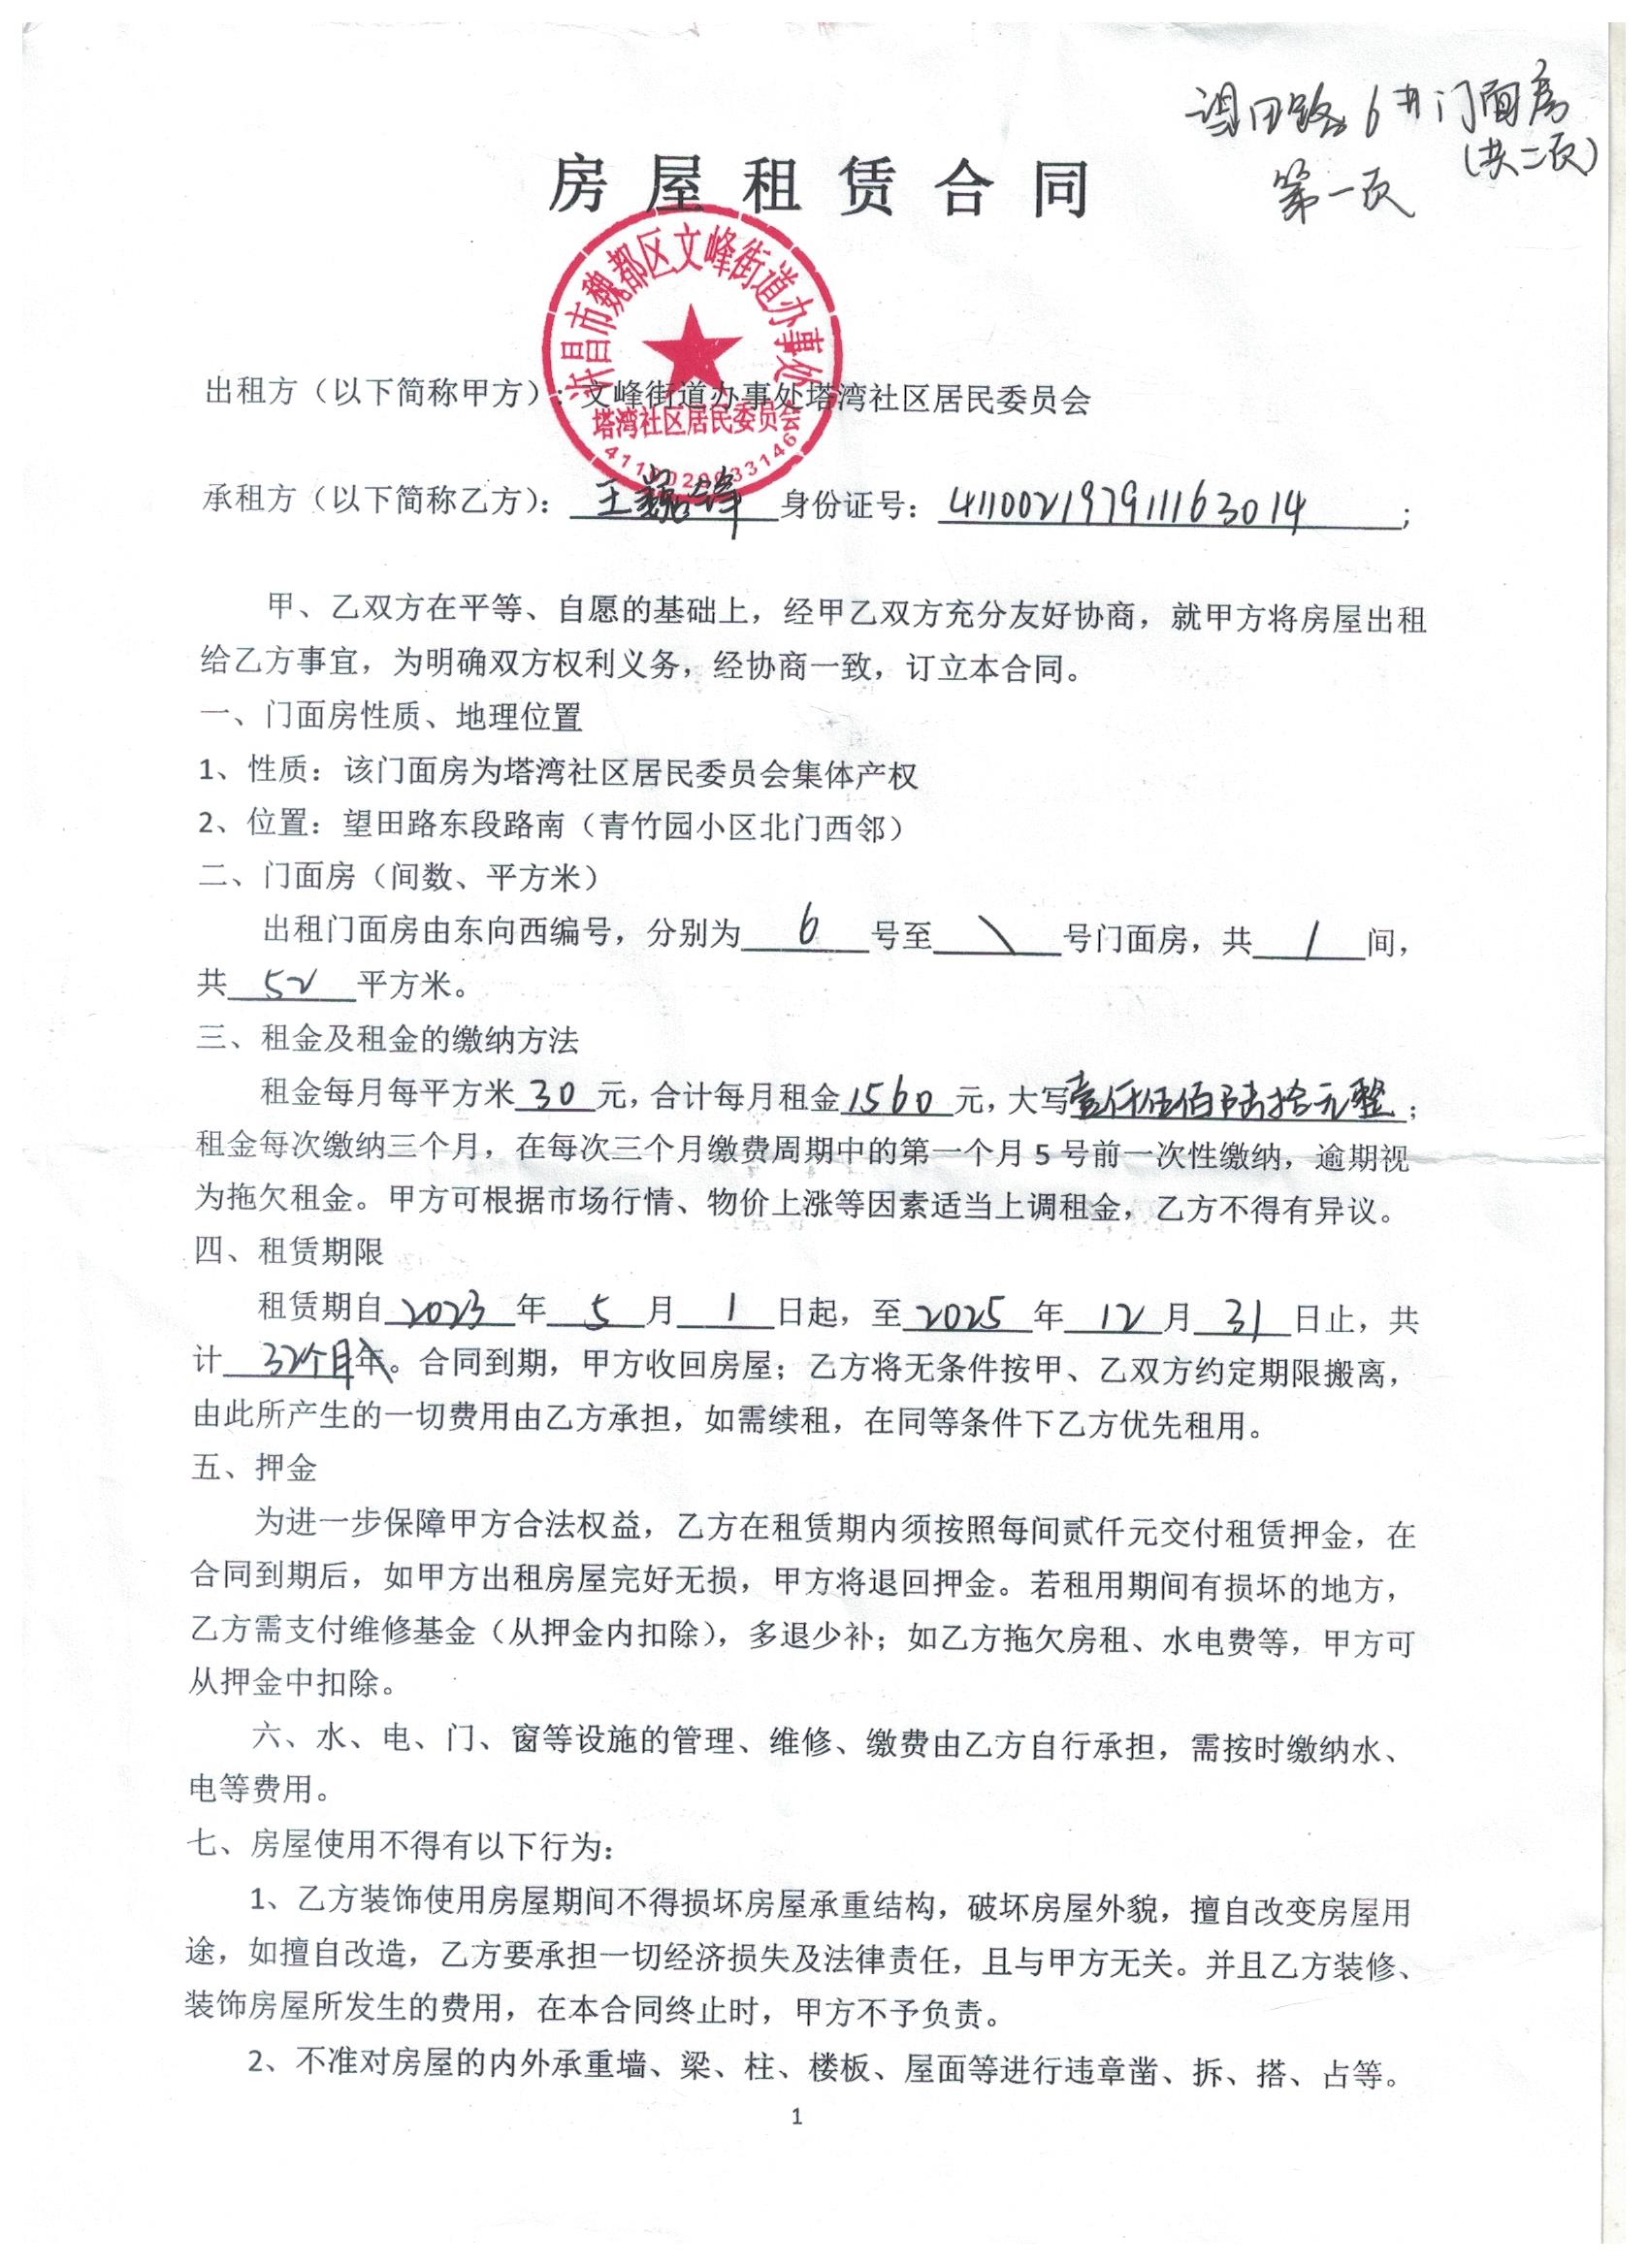 望田路6#门面房
(共二页)
第一页
房屋租赁合同
许昌市魏都区文峰街道办事处
塔湾社区居民委员会
出租方（以下简称甲方）：文峰街道办事处塔湾社区居民委员会
承租方（以下简称乙方）：王巍峰 身份证号：411002197911163014；
甲、乙双方在平等、自愿的基础上，经甲乙双方充分友好协商，就甲方将房屋出租
给乙方事宜，为明确双方权利义务，经协商一致，订立本合同。
一、门面房性质、地理位置
1、性质：该门面房为塔湾社区居民委员会集体产权
2、位置：望田路东段路南（青竹园小区北门西邻）
二、门面房（间数、平方米）
出租门面房由东向西编号，分别为 6 号至 \ 号门面房，共 1 间，
共 52 平方米。
三、租金及租金的缴纳方法
租金每月每平方米 30 元，合计每月租金 1560 元，大写壹仟伍佰陆拾元整；
租金每次缴纳三个月，在每次三个月缴费周期中的第一个月 5 号前一次性缴纳，逾期视
为拖欠租金。甲方可根据市场行情、物价上涨等因素适当上调租金，乙方不得有异议。
四、租赁期限
租赁期自 2023 年 5 月 1 日起，至 2025 年 12 月 31 日止，共
计 32个月年。合同到期，甲方收回房屋；乙方将无条件按甲、乙双方约定期限搬离，
由此所产生的一切费用由乙方承担，如需续租，在同等条件下乙方优先租用。
五、押金
为进一步保障甲方合法权益，乙方在租赁期内须按照每间贰仟元交付租赁押金，在
合同到期后，如甲方出租房屋完好无损，甲方将退回押金。若租用期间有损坏的地方，
乙方需支付维修基金（从押金内扣除），多退少补；如乙方拖欠房租、水电费等，甲方可
从押金中扣除。
六、水、电、门、窗等设施的管理、维修、缴费由乙方自行承担，需按时缴纳水、
电等费用。
七、房屋使用不得有以下行为：
1、乙方装饰使用房屋期间不得损坏房屋承重结构，破坏房屋外貌，擅自改变房屋用
途，如擅自改造，乙方要承担一切经济损失及法律责任，且与甲方无关。并且乙方装修、
装饰房屋所发生的费用，在本合同终止时，甲方不予负责。
2、不准对房屋的内外承重墙、梁、柱、楼板、屋面等进行违章凿、拆、搭、占等。
1